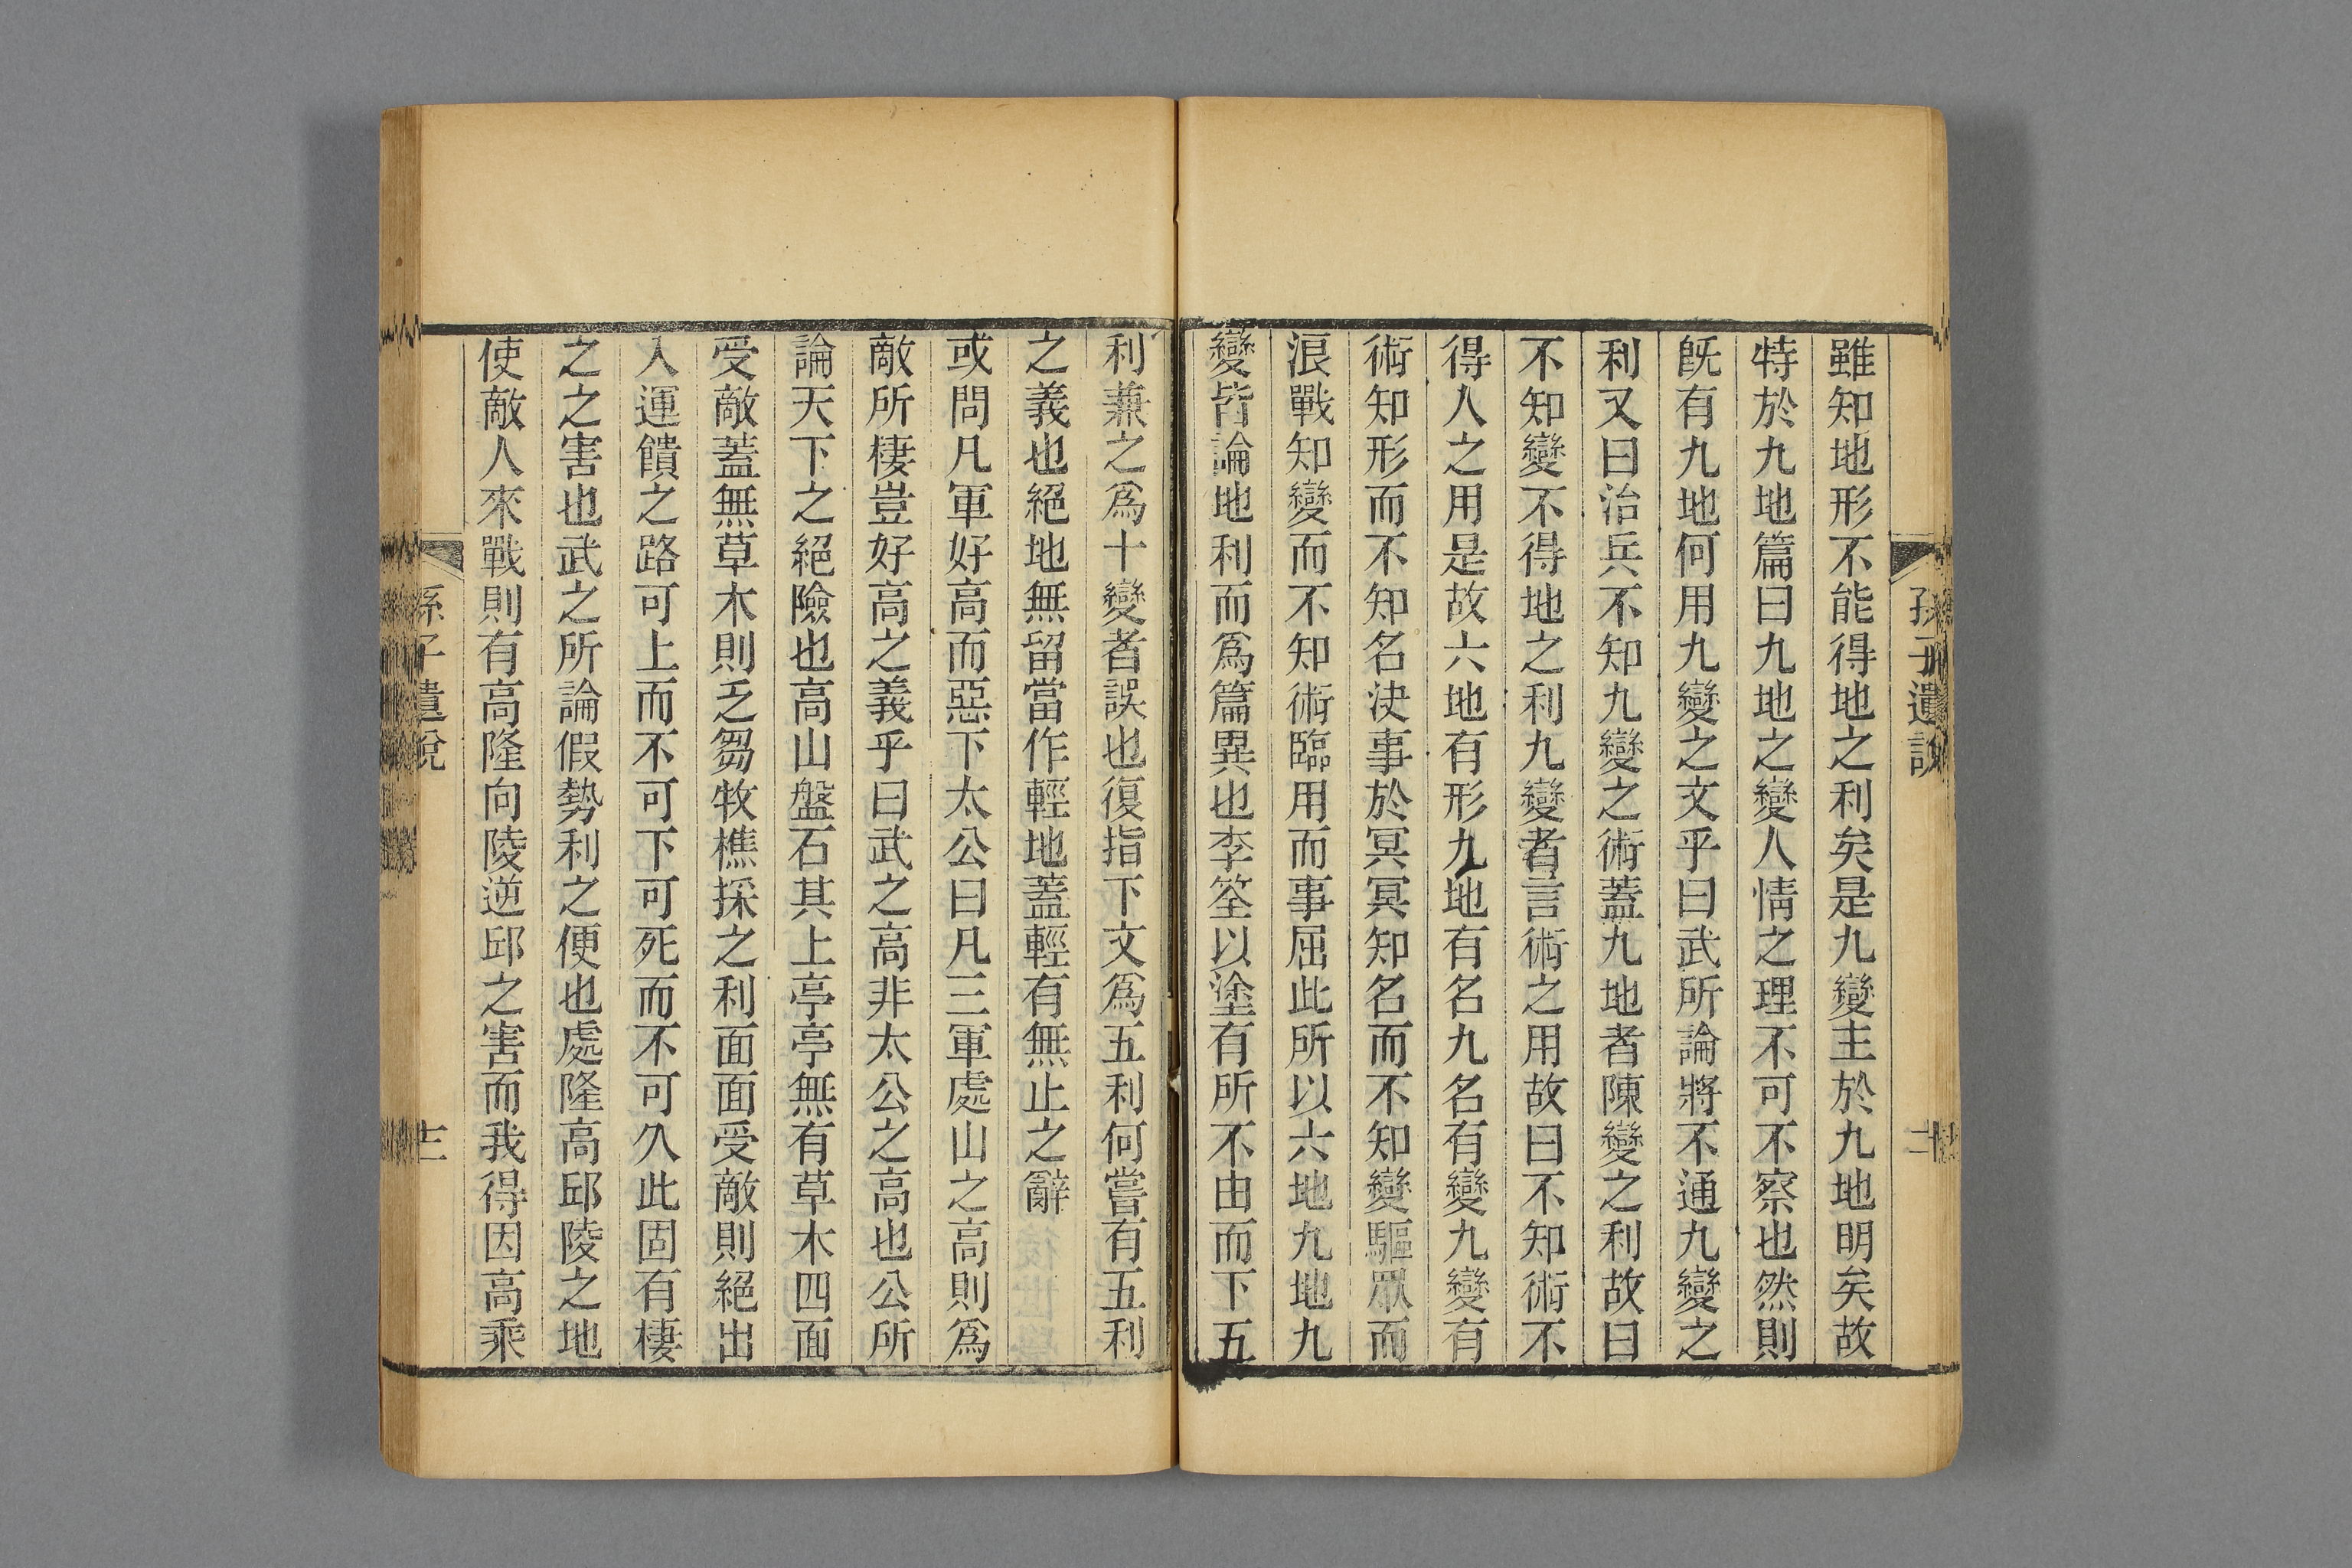 孫子遺說
十二
雖知地形不能得地之利矣是九變主於九地明矣故
特於九地篇曰九地之變人情之理不可不察也然則
旣有九地何用九變之文乎曰武所論將不通九變之
利又曰治兵不知九變之術蓋九地者陳變之利故曰
不知變不得地之利九變者言術之用故曰不知術不
得人之用是故六地有形九地有名九名有變九變有
術知形而不知名決事於冥冥知名而不知變驅眾而
浪戰知變而不知術臨用而事屈此所以六地九地九
變皆論地利而爲篇異也李筌以塗有所不由而下五
利兼之爲十變者誤也復指下文爲五利何嘗有五利
之義也絕地無留當作輕地蓋輕有無止之辭
或問凡軍好高而惡下太公曰凡三軍處山之高則爲
敵所棲豈好高之義乎曰武之高非太公之高也公所
論天下之絕險也高山盤石其上亭亭無有草木四面
受敵蓋無草木則乏芻牧樵採之利面面受敵則絕出
入運饋之路可上而不可下可死而不可久此固有棲
之之害也武之所論假勢利之便也處隆高邱陵之地
使敵人來戰則有高隆向陵逆邱之害而我得因高乘
孫子遺說